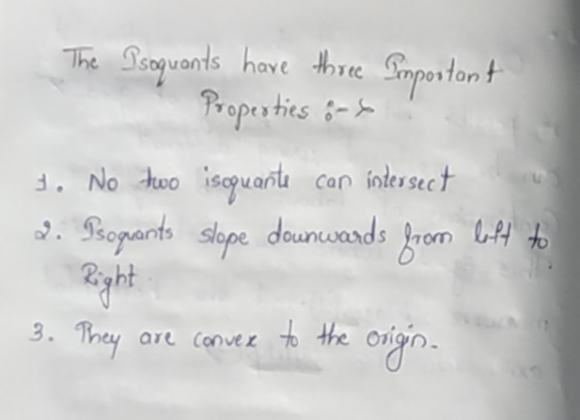 The Isoquants have three Important
Properties :->
1. No two isoquants can intersect
2. Isoquants slope dounwards from left to
Right
3. They are convex to the origin.